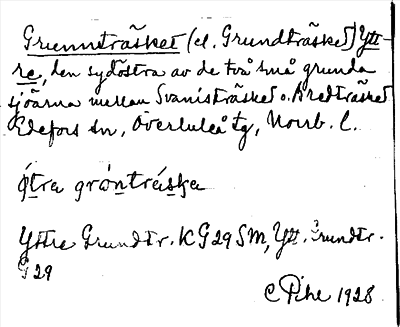 Grunnträsket (el. Grundträsket) Ytt-
re, den sydöstra av de två små grunda
sjöarna mellan Svanisträsket o. Bredträsket
Edefors sn, Överluleå tg, Norrb. l.
ýtra gròntráska
Yttre Grundtr. KG29SM, Ytt. Grundtr.
G29
C Pihl 1928